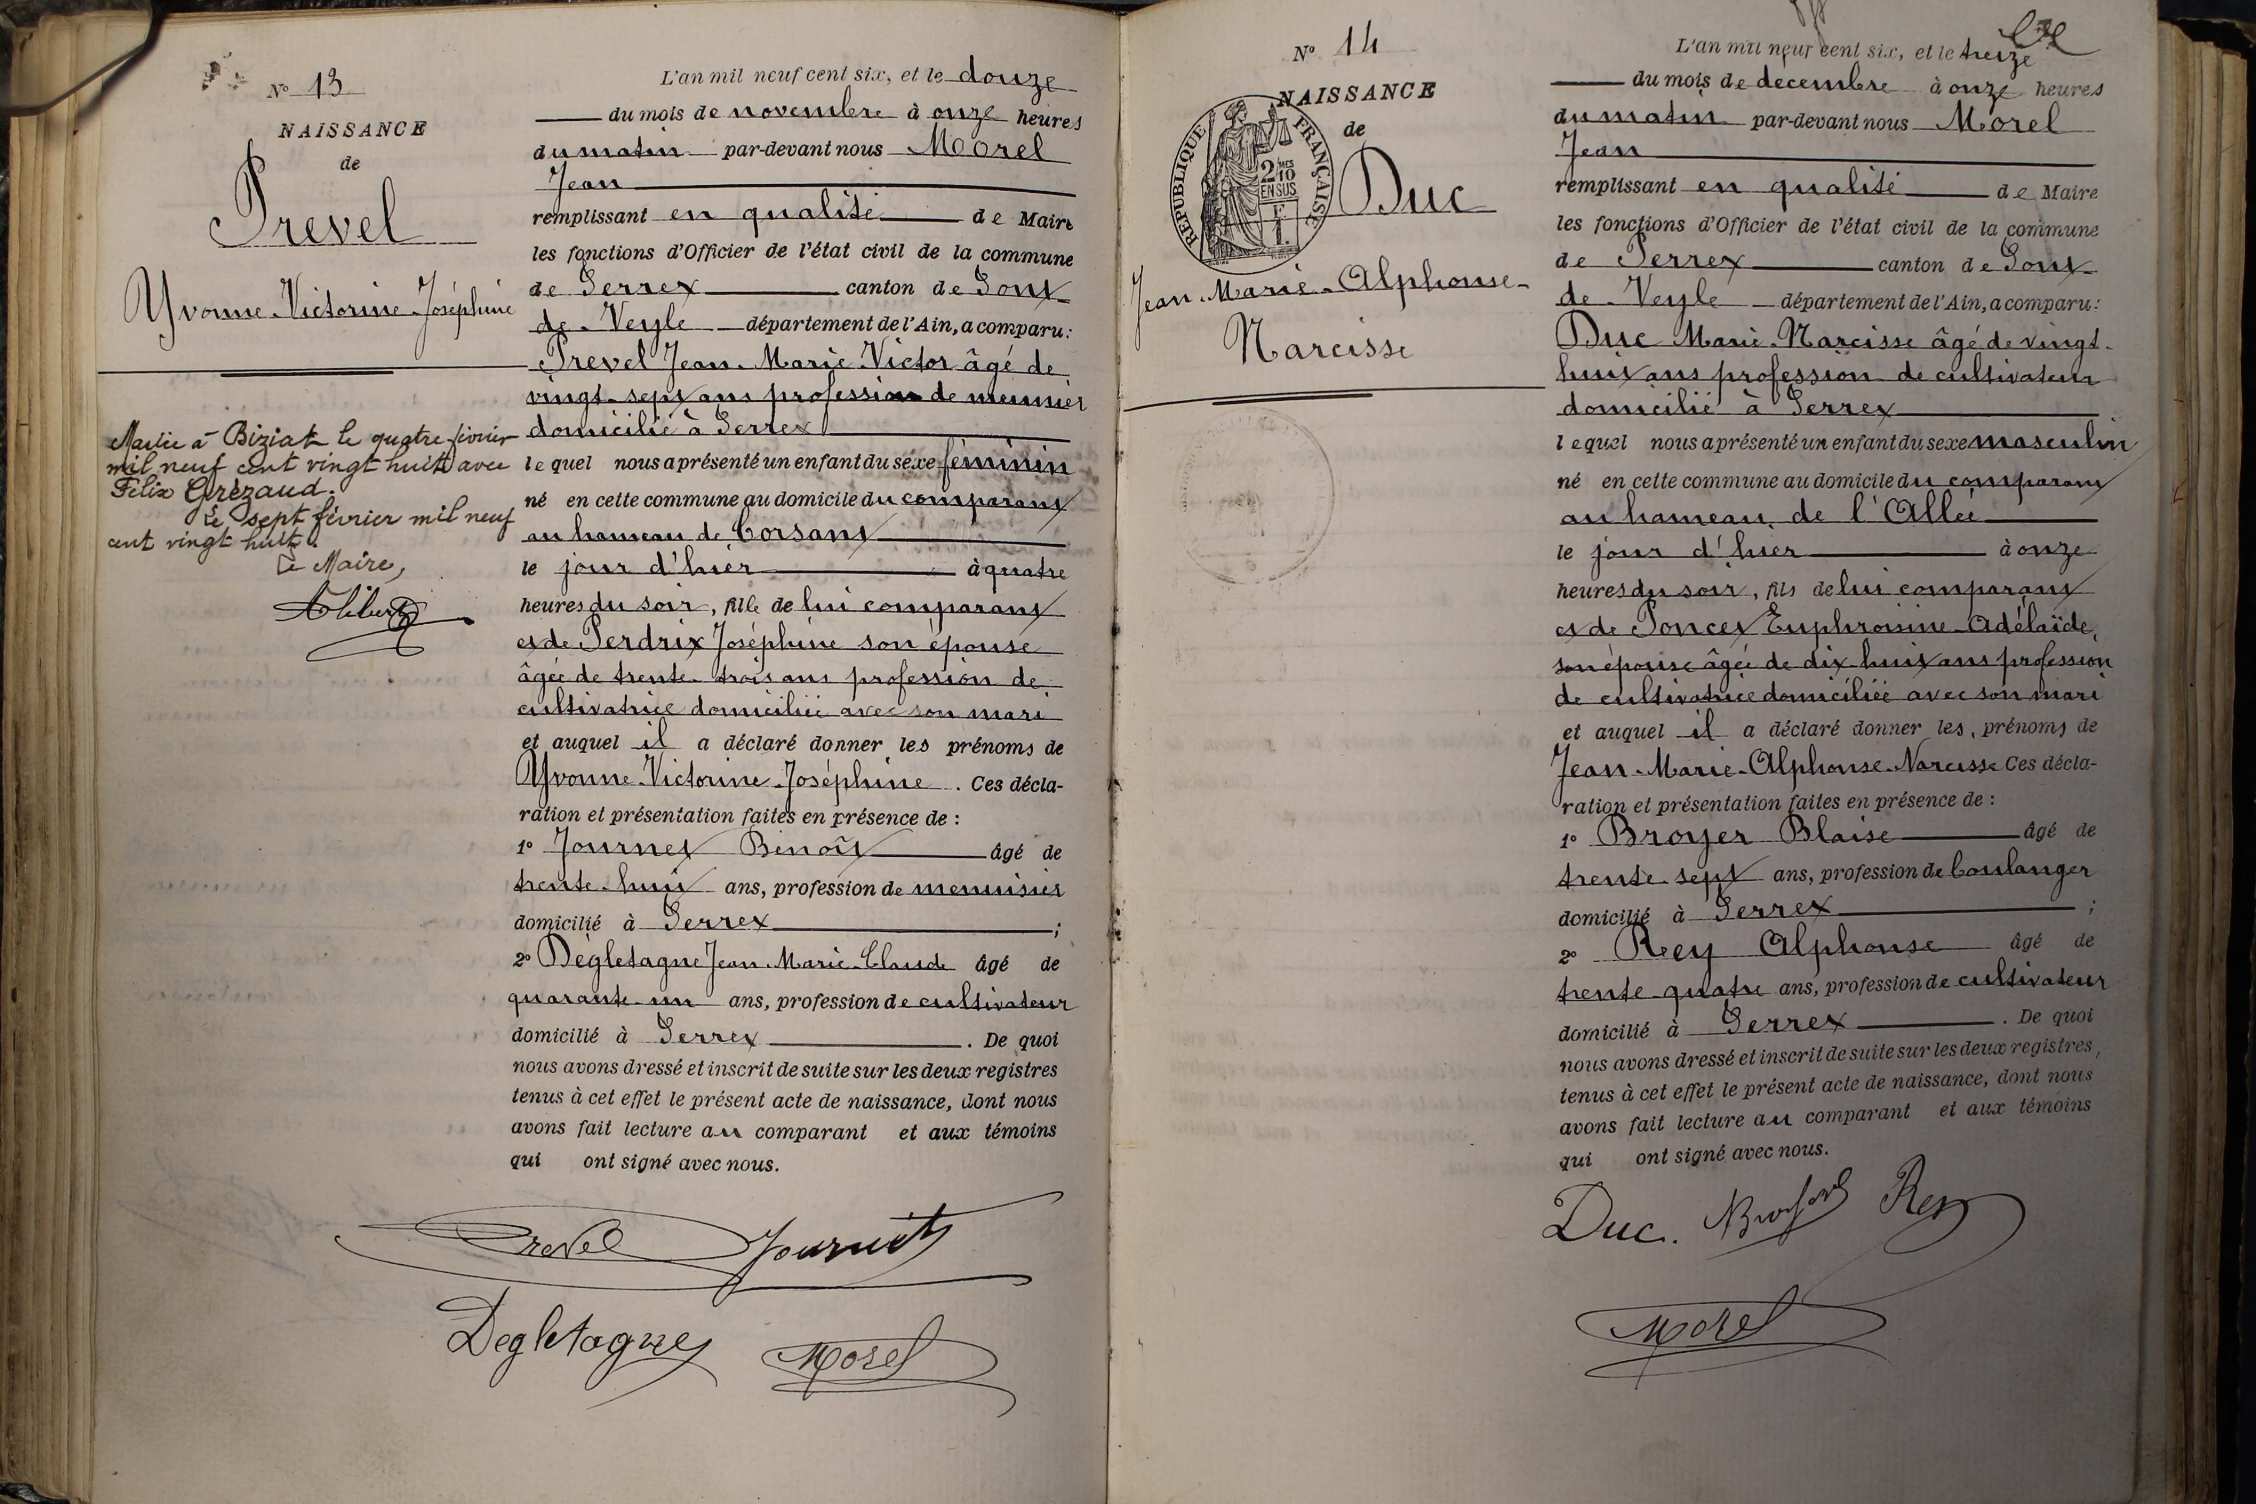 Nº 13
NAISSANCE
de
Prevel
Yvonne-Victorine-Joséphine
Mariée à Biziat le quatre février
mil neuf cent vingt huit avec
Felix Gerézaud.
Le sept février mil neuf
cent vingt huit.
Le Maire,
L'an mil neuf cent six, et le douze
du mois de novembre à onze heures
du matin par-devant nous Morel
Jean
remplissant en qualité de Maire
les fonctions d'Officier de l'état civil de la commune
de Perrex canton de Pont
de Veyle département de l'Ain, a comparu:
Prevel Jean-Marie-Victor âgé de
vingt-sept ans profession de meunier
domicilié à Perrex
lequel nous a présenté un enfant du sexe féminin
né en cette commune au domicile du comparant
au hameau de Corsant
le jour d'hier à quatre
heures du soir, fille de lui comparant
et de Perdrix Joséphine son épouse
âgée de trente-trois ans profession de
cultivatrice domiciliée avec son mari
et auquel il a déclaré donner les prénoms de
Yvonne-Victorine-Joséphine. Ces décla-
ration et présentation faites en présence de :
1º Journet Benoît âgé de
trente-huit ans, profession de menuisier
domicilié à Perrex ;
2º Dègletagne Jean-Marie-Claude âgé de
quarante-un ans, profession de cultivateur
domicilié à Perrex. De quoi
nous avons dressé et inscrit de suite sur les deux registres
tenus à cet effet le présent acte de naissance, dont nous
avons fait lecture au comparant et aux témoins
qui ont signé avec nous.
Prevel Journet
Degletagne Morel
Nº 14
NAISSANCE
de
RÉPUBLIQUE FRANÇAISE
2/10 MES
EN SUS
Duc
Jean-Marie-Alphonse-
Narcisse
L'an mil neuf cent six, et le treize
du mois de decembre à onze heures
du matin par-devant nous Morel
Jean
remplissant en qualité de Maire
les fonctions d'Officier de l'état civil de la commune
de Perrex canton de Pont
de Veyle département de l'Ain, a comparu:
Duc Marie-Narcisse âgé de vingt-
huit ans profession de cultivateur
domicilié à Perrex
lequel nous a présenté un enfant du sexe masculin
né en cette commune au domicile du comparant
au hameau de l'Allée
le jour d'hier à onze
heures du soir, fils de lui comparant
et de Poncet Euphroisine-Adélaïde,
son épouse âgée de dix-huit ans profession
de cultivatrice domiciliée avec son mari
et auquel il a déclaré donner les prénoms de
Jean-Marie-Alphonse-Narcisse Ces décla-
ration et présentation faites en présence de :
1º Broyer Blaise âgé de
trente-sept ans, profession de boulanger
domicilié à Perrex ;
2º Rey Alphonse âgé de
trente-quatre ans, profession de cultivateur
domicilié à Perrex. De quoi
nous avons dressé et inscrit de suite sur les deux registres
tenus à cet effet le présent acte de naissance, dont nous
avons fait lecture au comparant et aux témoins
qui ont signé avec nous.
Duc. Rey
Morel